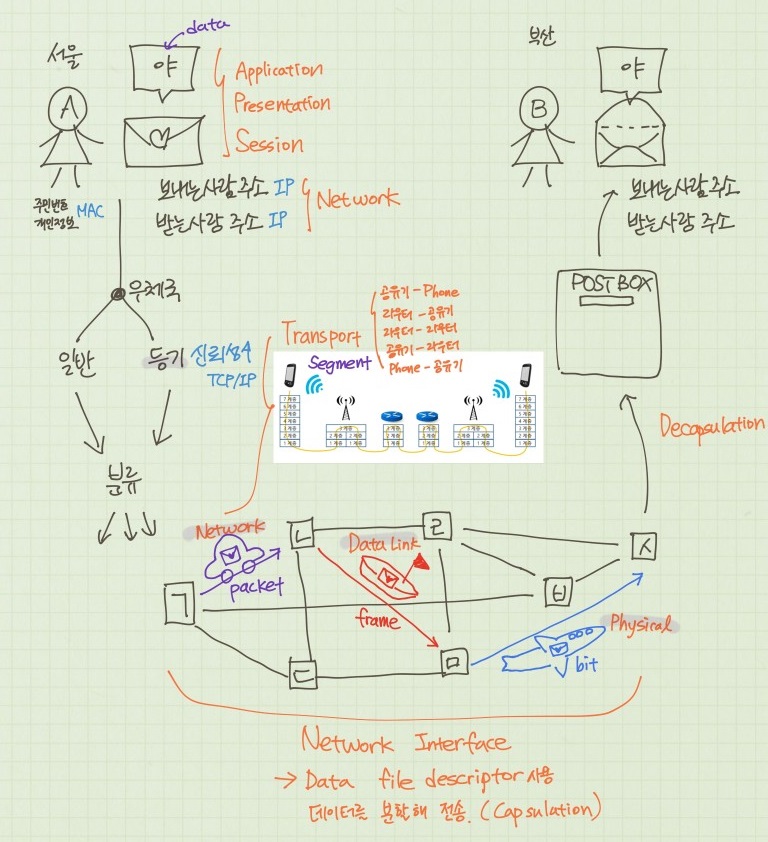 data
서울
야
Application
Presentation
Session
A
보내는사람 주소 IP
받는사람 주소 IP
Network
주민번호
개인정보
MAC
우체국
일반
등기
신뢰성↑
TCP/IP
분류
부산
야
B
보내는사람 주소
받는사람 주소
POST BOX
Decapsulation
Transport
Segment
공유기 - Phone
라우터 - 공유기
라우터 - 라우터
공유기 - 라우터
Phone - 공유기
7 계층
6 계층
5 계층
4 계층
3 계층
2 계층
1 계층
3 계층
2 계층 2 계층
1 계층 1 계층
3 계층
2 계층 2 계층
1 계층 1 계층
7 계층
6 계층
5 계층
4 계층
3 계층
2 계층
1 계층
Network
packet
ㄱ
ㄴ
ㄷ
ㄹ
ㅁ
ㅂ
ㅅ
Data Link
frame
Physical
bit
Network Interface
→ Data file descriptor 사용
데이터를 분할해 전송. (Capsulation)